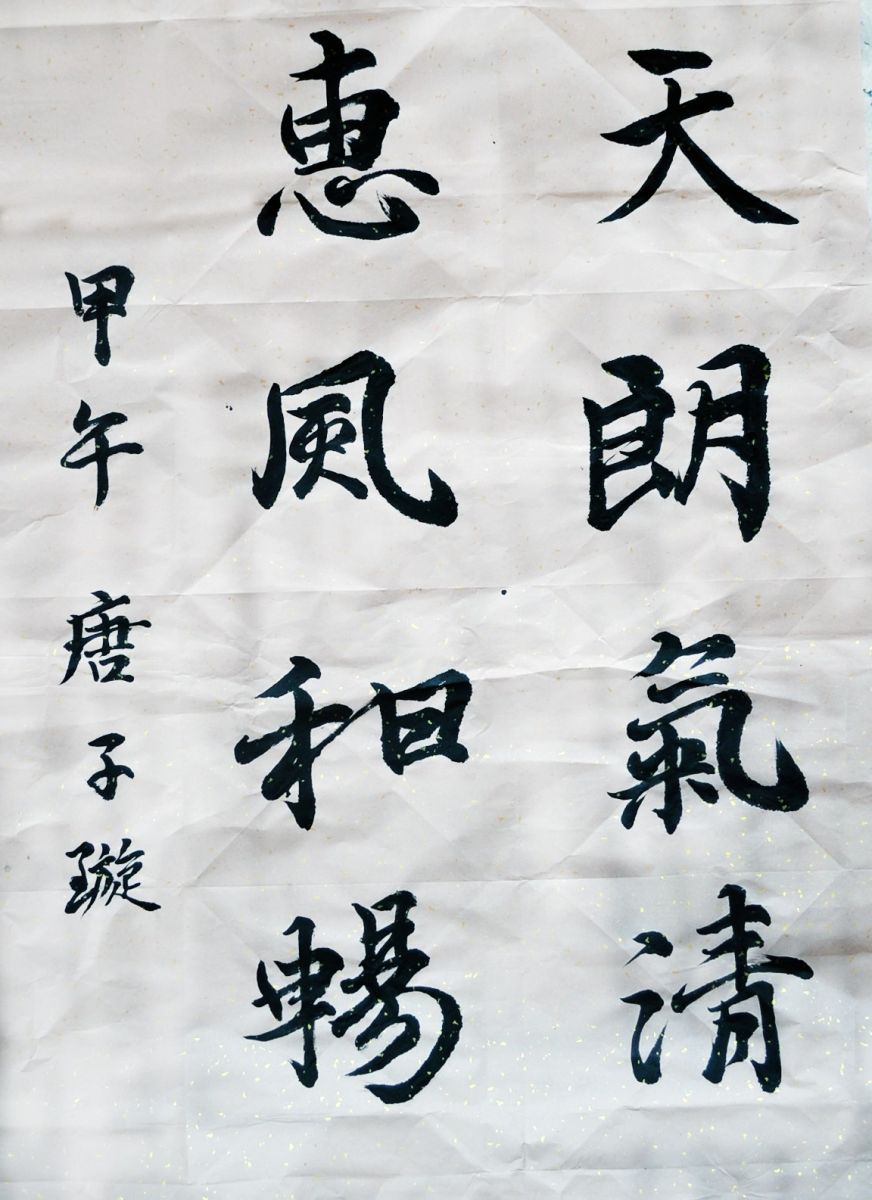 天朗氣清
惠風和暢
甲午 唐子璇